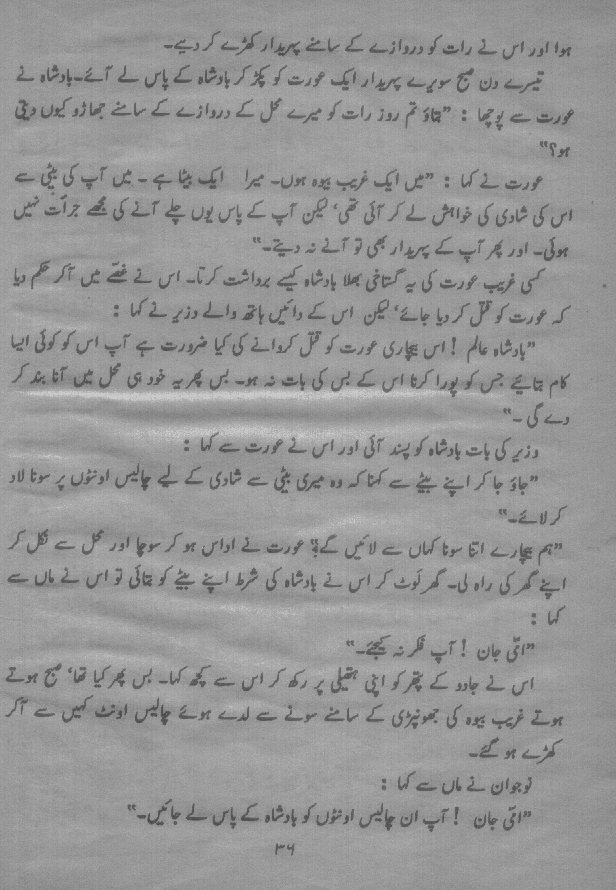 ہوا اور اس نے رات کو دروازے کے سامنے پہریدار کھڑے کر دیے۔
تیسرے دن صبح سویرے پہریدار ایک عورت کو پکڑ کر بادشاہ کے پاس لے آئے۔ بادشاہ نے
عورت سے پوچھا : ”بتاؤ تم روز رات کو میرے محل کے دروازے کے سامنے جھاڑو کیوں دیتی
ہو؟“
عورت نے کہا : ”میں ایک غریب بیوہ ہوں۔ میرا ایک بیٹا ہے ۔ میں آپ کی بیٹی سے
اس کی شادی کی خواہش لے کر آئی تھی‘ لیکن آپ کے پاس یوں چلے آنے کی مجھے جرأت نہیں
ہوئی۔ اور پھر آپ کے پہریدار بھی تو آنے نہ دیتے۔“
کسی غریب عورت کی یہ گستاخی بھلا بادشاہ کیسے برداشت کرتا۔ اس نے غصّے میں آکر حکم دیا
کہ عورت کو قتل کر دیا جائے‘ لیکن اس کے دائیں ہاتھ والے وزیر نے کہا :
”بادشاہ عالم ! اس بیچاری عورت کو قتل کروانے کی کیا ضرورت ہے آپ اس کو کوئی ایسا
کام بتائیے جس کو پورا کرنا اس کے بس کی بات نہ ہو۔ بس پھر یہ خود ہی محل میں آنا بند کر
دے گی ۔“
وزیر کی بات بادشاہ کو پسند آئی اور اس نے عورت سے کہا :
”جاؤ جا کر اپنے بیٹے سے کہنا کہ وہ میری بیٹی سے شادی کے لیے چالیس اونٹوں پر سونا لاد
کر لائے۔“
”ہم بیچارے اتنا سونا کہاں سے لائیں گے؟“ عورت نے اداس ہو کر سوچا اور محل سے نکل کر
اپنے گھر کی راہ لی۔ گھر لوٹ کر اس نے بادشاہ کی شرط اپنے بیٹے کو بتائی تو اس نے ماں سے
کہا :
”امّی جان ! آپ فکر نہ کیجئے۔“
اس نے جادو کے پتھر کو اپنی ہتھیلی پر رکھ کر اس سے کچھ کہا۔ بس پھر کیا تھا‘ صبح ہوتے
ہوتے غریب بیوہ کی جھونپڑی کے سامنے سونے سے لدے ہوئے چالیس اونٹ کہیں سے آکر
کھڑے ہو گئے۔
نوجوان نے ماں سے کہا :
”امّی جان ! آپ ان چالیس اونٹوں کو بادشاہ کے پاس لے جائیں۔“
۳۶